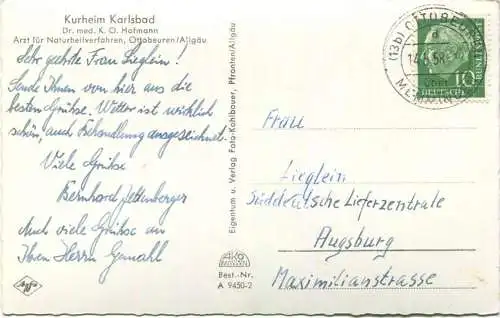 Kurheim Karlsbad
Dr. med. K. O. Hofmann
Arzt für Naturheilverfahren, Ottobeuren/Allgäu
Sehr geehrte Frau Lieglein!
Sende Ihnen von hier aus die
besten Grüsse. Wetter ist wirklich
schön, auch Behandlung ausgezeichnet.
Viele Grüsse
Bernhard Jettenberger
Auch viele Grüsse an
Ihren Herrn Gemahl
Agfa
Eigentum u. Verlag Foto-Kohlbauer, Pfronten/Allgäu
Best.-Nr.
A 9450-2
(13b) OTTOBEUREN
über
MEMMINGEN
10
DEUTSCHE BUNDESPOST
Frau
Lieglein
Süddeutsche Lieferzentrale
Augsburg
Maximilianstrasse